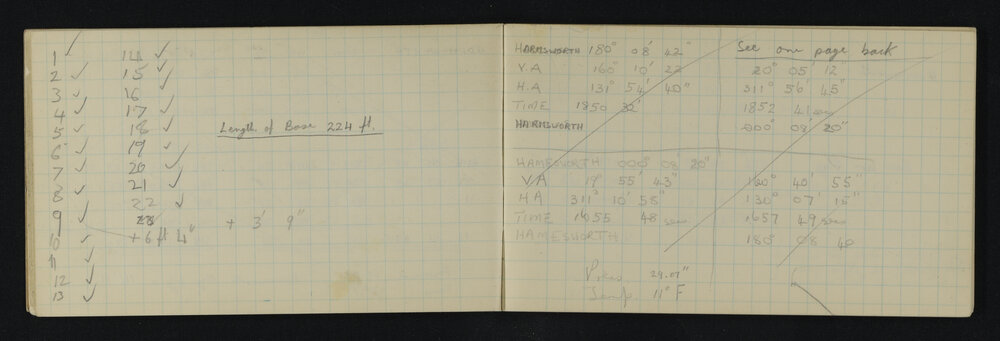 1 ✓ 14 ✓
2 ✓ 15 ✓
3 ✓ 16 ✓
4 ✓ 17 ✓
5 ✓ 18 ✓
6 ✓ 19 ✓
7 ✓ 20 ✓
8 ✓ 21 ✓
9 ✓ 22 ✓
10 ✓ + 6 ft 4"
11 ✓
12 ✓
13 ✓
Length of Base 224 ft.
+ 3' 9"
HARMSWORTH 180° 08' 42"
V.A 160° 10' 22
H.A 131° 54' 40"
TIME 1850 32'
HARMSWORTH
See one page back
20° 05' 12"
311° 56' 45"
1852 41 sec
000° 08' 20"
HAMESWORTH 000° 08' 20"
V A 19° 55' 43"
H A 311° 10' 55"
TIME 1655 48 sec
HAMESWORTH
160° 40' 55"
130° 07' 15"
1657 49 sec
180° 08' 40
Press 29.07"
Temp 11° F